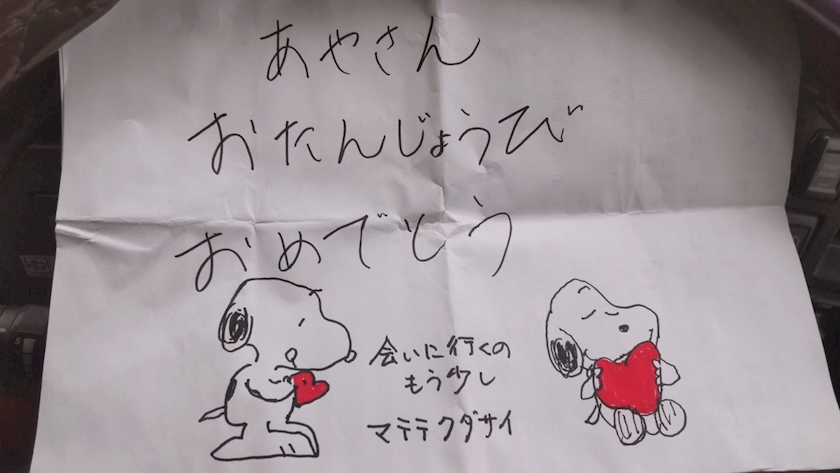 あやさん
おたんじょうび
おめでとう
会いに行くの
もう少し
マテテクダサイ